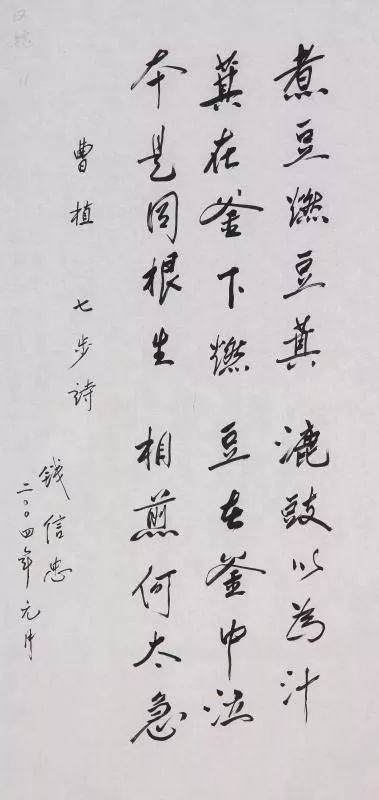 煮豆燃豆萁 漉豉以為汁
萁在釜下燃 豆在釜中泣
本是同根生 相煎何太急
曹植 七步詩
钱信忠
二〇〇四年元月